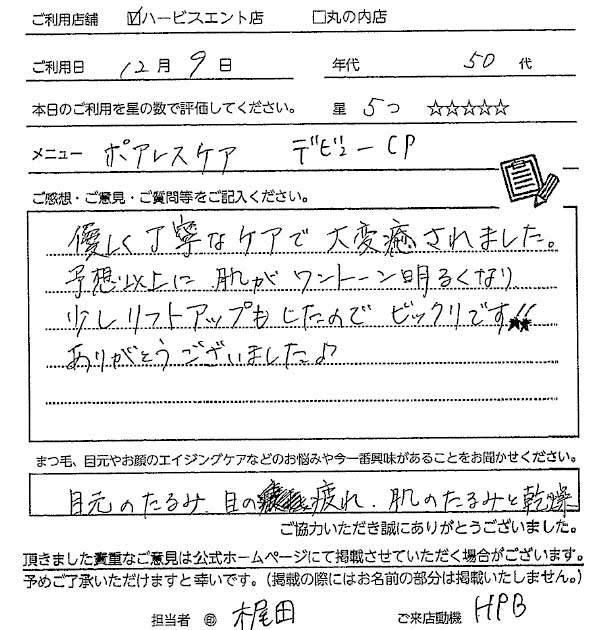 ご利用店舗 ☑ハービスエント店 □丸の内店
ご利用日 12月 9日 年代 50代
本日のご利用を星の数で評価してください。 星 5つ ☆☆☆☆☆
メニュー ポアレスケア デビューCP
ご感想・ご意見・ご質問等をご記入ください。
優しく丁寧なケアで大変癒されました。
予想以上に肌がワントーン明るくなり
少しリフトアップもしたのでビックリです!!
ありがとうございました♪
まつ毛、目元やお顔のエイジングケアなどのお悩みや今一番興味があることをお聞かせください。
目元のたるみ、目の疲れ、肌のたるみと乾燥
ご協力いただき誠にありがとうございました。
頂きました貴重なご意見は公式ホームページにて掲載させていただく場合がございます。
予めご了承いただけますと幸いです。(掲載の際にはお名前の部分は掲載いたしません。)
担当者 ㊞ 梶田 ご来店動機 HPB